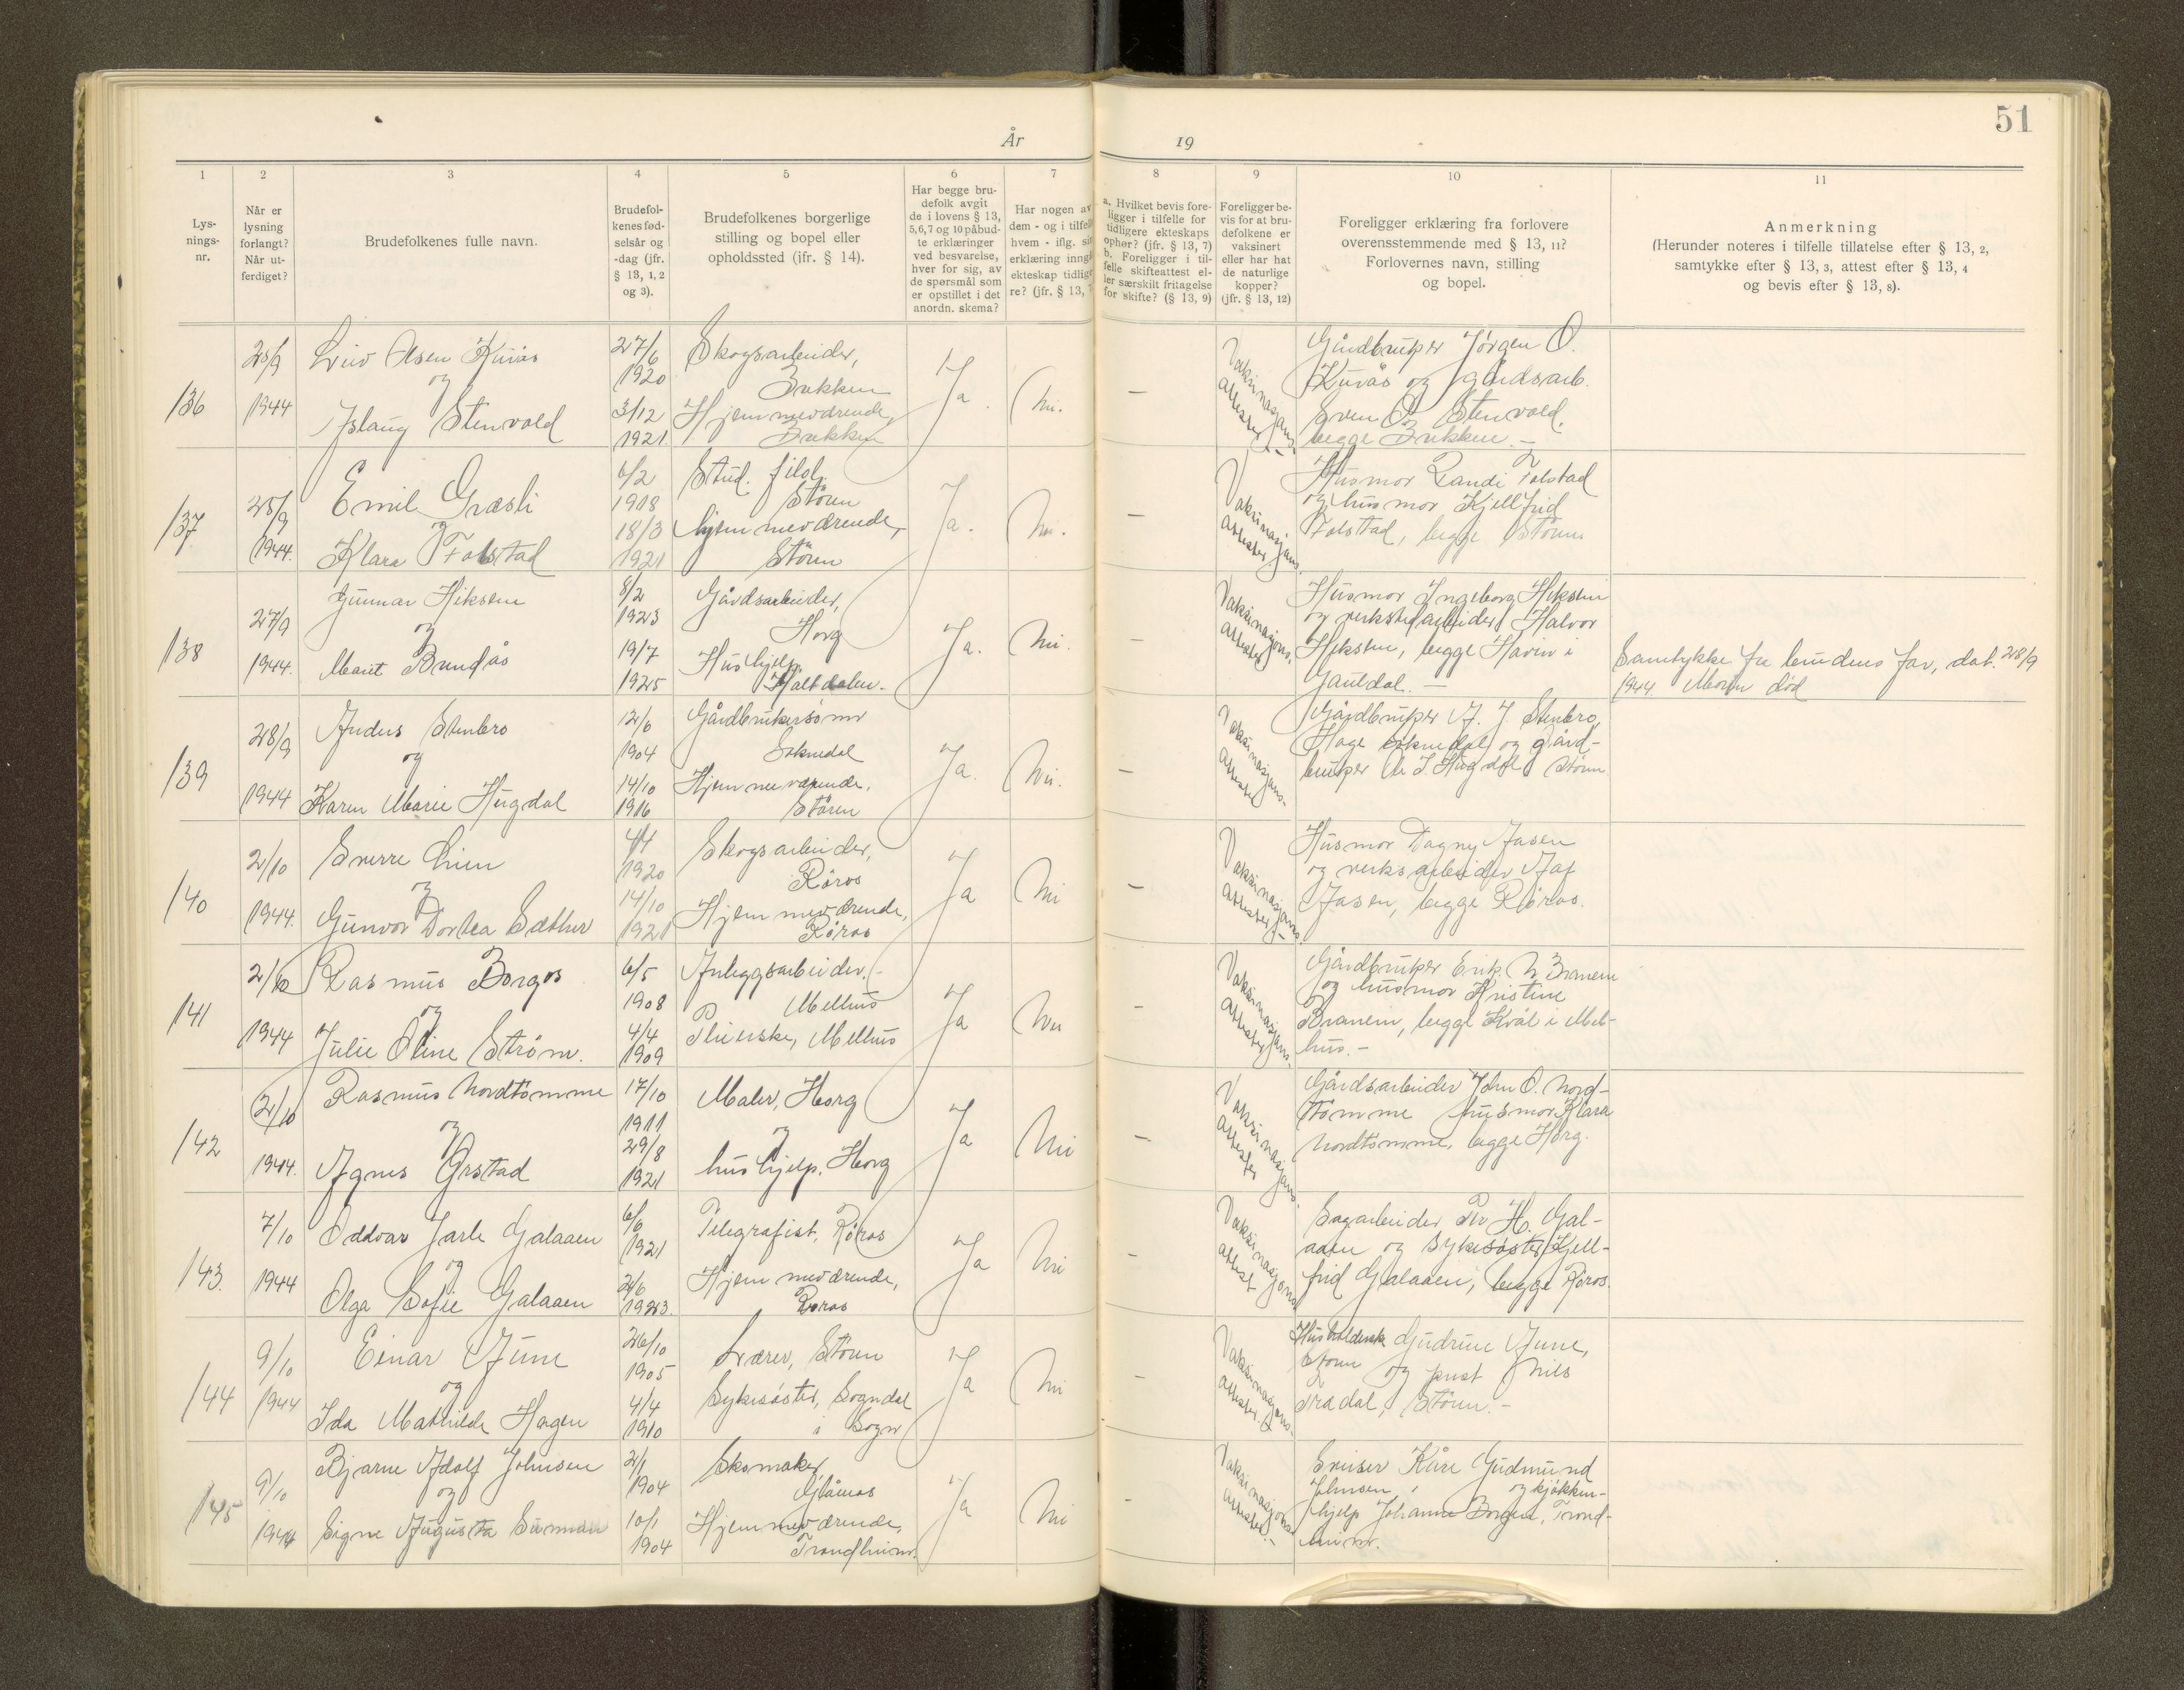 51
År 19
1
Lys-
nings-
nr.
2
Når er
lysning
forlangt?
Når ut-
ferdiget?
3
Brudefolkenes fulle navn.
4
Brudefol-
kenes fød-
selsår og
-dag (jfr.
§ 13, 1, 2
og 3).
5
Brudefolkenes borgerlige
stilling og bopel eller
opholdssted (jfr. § 14).
6
Har begge bru-
defolk avgit
de i lovens § 13,
5,6,7 og 10 påbud-
te erklæringer
ved besvarelse,
hver for sig, av
de spørsmål som
er opstillet i det
anordn. skema?
7
Har nogen av
dem - og i tilfelle
hvem - iflg. sin
erklæring inngå
ekteskap tidlige
re? (jfr. § 13, 7
8
a. Hvilket bevis fore-
ligger i tilfelle for
tidligere ekteskaps
ophør? (jfr. § 13, 7)
b. Foreligger i til-
felle skifteattest el-
ler særskilt fritagelse
for skifte? (§ 13, 9)
9
Foreligger be-
vis for at bru-
defolkene er
vaksinert
eller har hat
de naturlige
kopper?
(jfr. § 13, 12)
10
Foreligger erklæring fra forlovere
overensstemmende med § 13, 11?
Forlovernes navn, stilling
og bopel.
11
Anmerkning
(Herunder noteres i tilfelle tillatelse efter § 13, 2,
samtykke efter § 13, 3, attest efter § 13, 4
og bevis efter § 13, 8).
136
25/9
1944
Olsen Kuvås
og
Aslaug Stenvold
27/6
1920
3/12
1921
Skogsarbeider,
Brekken
Hjemmeværende,
Brekken
Ja.
Nei.
—
Vaksinasjons-
attester
Gårdbruker Jørgen O.
Kuvås og gårdsarb.
Sven O. Stenvold,
begge Brekken. —
137
25/9
1944.
Emil Græsli
og
Klara Folstad
6/2
1918
18/3
1921
Stud. filol.
Støren
hjemmeværende,
Støren
Ja.
Nei.
—
Vaksinasjons-
attester
Husmor Randi Folstad
og husmor Kjellfrid
Folstad, begge Støren
138
27/9
1944.
Gunnar Hiksen
og
Marit Bendås
8/2
1923
19/7
1925
Gårdsarbeider,
Horg
Hushjelp,
Haltdalen.
Ja.
Nei.
—
Vaksinasjons-
attester
Husmor Ingeborg Heksem
og verkstedarbeider Halvor
Heksem, begge Hovin i
Gauldal. —
Samtykke fra brudens far, dat. 28/9
1944. Moren død
139
28/9
1944
Anders Stenbro
og
Karen Marie Hugdal
12/6
1904
14/10
1916
Gårdbrukersønn
Soknedal
Hjemmeværende,
Støren
Ja.
Nei.
—
Vaksinasjons-
attester
Gårdbruker A. J. Stenbro,
Hage Soknedal og gård-
bruker Hugdal Støren
140
2/10
1944.
Sverre Lien
og
Gunvor Dortea Sæther
4/4
1920
14/10
1921
Skogsarbeider,
Røros
Hjemmeværende,
Røros
Ja
Nei
—
Vaksinasjons-
attester
Husmor Dagny Aasen
og verksarbeider
Aasen, begge Røros.
141
2/10
1944
Rasmus Borgos
og
Julie Oline Strøm.
6/5
1908
4/4
1909
Anleggsarbeider,
Melhus
Pleierske, Melhus
Ja
Nei
—
Vaksinasjons-
attester
Gårdbruker Erik N. Branem
og husmor Kristine
Branem, begge Kvål i Mel-
hus. —
142
2/10
1944.
Rasmus Nordtømme
og
Agnes Grstad
17/10
1911
29/8
1921
Maler, Horg
og
hushjelp, Horg
Ja
Nei
—
Vaksinasjons-
attester
Gårdsarbeider John O. Nord-
tømme husmor Klara
Nordtømme, begge Horg.
143.
7/10
1944
Oddvar Jarle Galaaen
og
Olga Sofie Galaaen
6/6
1921
2/6
1923.
Telegrafist, Røros
Hjemmeværende,
Røros
Ja
Nei
—
Vaksinasjons-
attest
Sagarbeider Per H. Gal-
aaen og sykesøster Kjell-
frid Galaaen, begge Røros.
144
9/10
1944
Einar Aune
og
Ida Mathilde Hagen
26/10
1905
4/4
1910
Lærer, Støren
Sykesøster, Sogndal
i Sogn
Ja
Nei
—
Vaksinasjons-
attester.
Husholderske Gudrun Aune,
Støren og prest Nils
Fradal, Støren. —
145
9/10
1944
Bjarne Adolf Johnsen
og
Signe Augusta
2/1
1904
10/1
1904
Skomaker,
Glåmos
Hjemmeværende,
Trondheim.
Ja
Nei
—
Vaksinasjons-
attester.
Kåre Gudmund
Johnsen, og kjøkken-
hjelp Johanne Borgen, Trond-
heim.